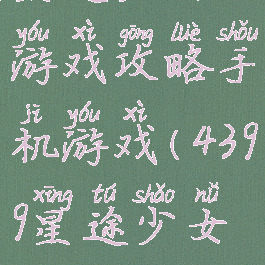 yóu xì gōng lüè shǒu
游戏攻略手
jī yóu xì
机游戏(439
xīng tú shǎo nǚ
9星途少女